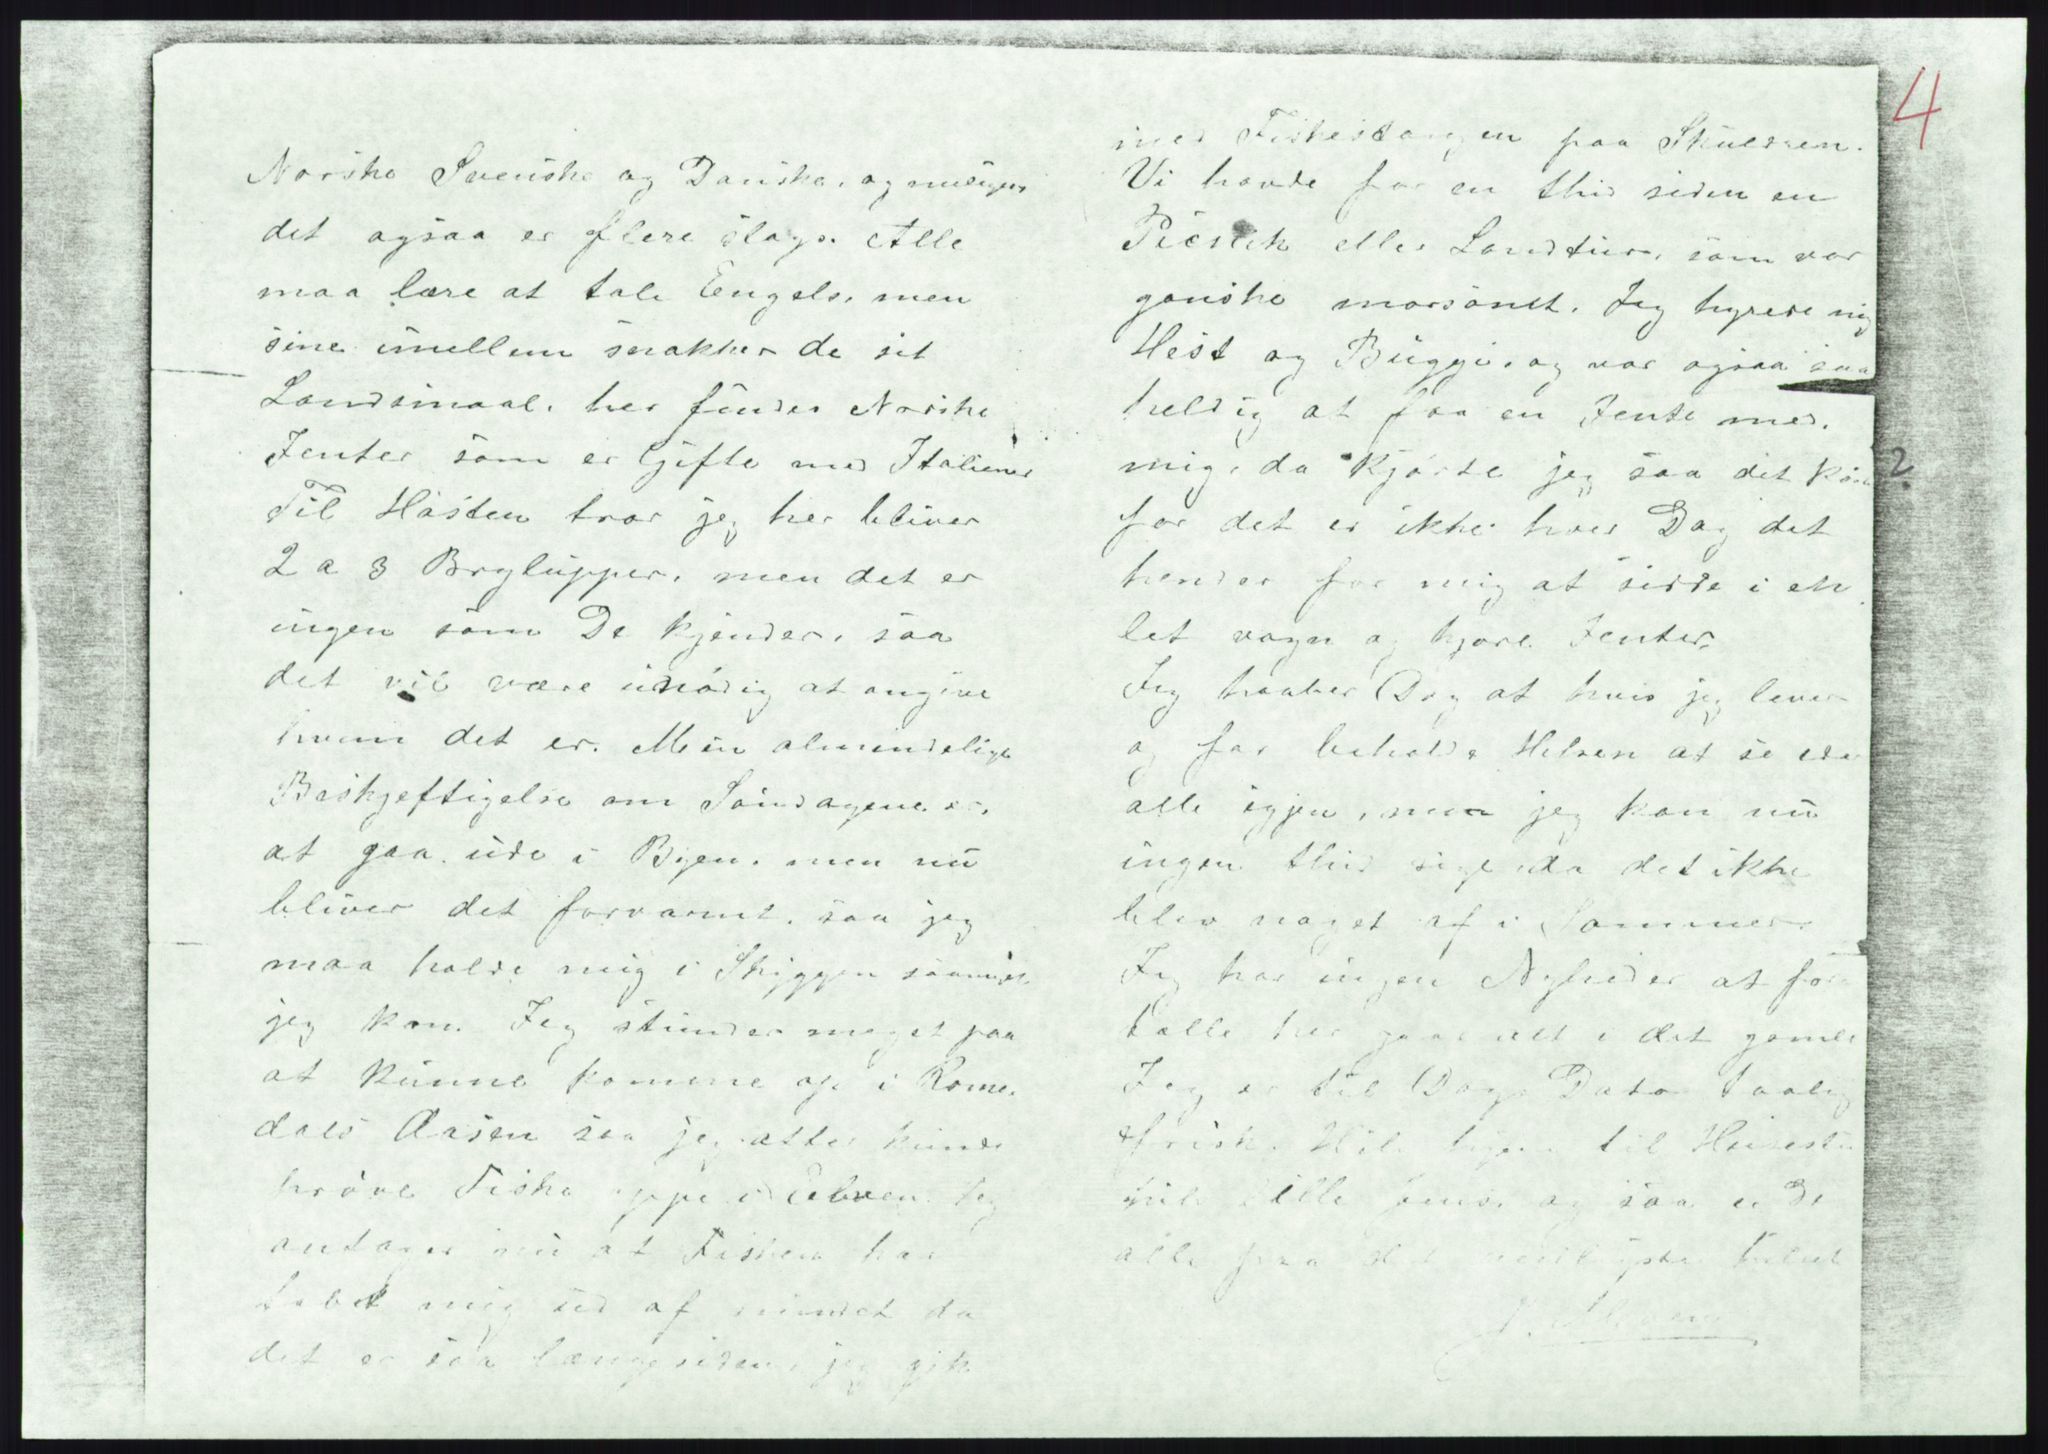 4
Norske Svenske og Danske, og muligens
det ogsaa er flere slags. Alle
maa lære at tale Engels, men
sine imellem snakker de sit
Landsmaal, her findes Norske
Jenter som er Gifte med Italiener
Til Hösten tror jeg her bliver
2 a 3 Brylupper, men det er
ingen som De kjender, saa
det vil være unödig at angive
hvem det er. Min almindelige
Beskjeftigelse om Söndagene er,
at gaa ude i Byen, men nu
bliver det forvarmt, saa jeg
maa holde mig i Skyggen
jeg kan. Jeg stunder meget paa
at kunne komme op i Rome-
dals Aasen saa jeg atter kunde
pröve Fiske oppe i Elven Jeg
antager nu at Fisken har
tabt mig ud af mindet da
det er saa længe siden, jeg gik
med Fiskestangen paa Skuldren.
Vi havde for en thid siden en
Picnik eller Landtur, som var
ganske morsomt. Jeg hyrede mig
Hest og Buggi, og var ogsaa saa
heldig at faa en Jente med
mig, da Kjörte jeg saa det
for det er ikke hver Dag det
hender for mig at sidde i en
let vogn og kjøre Jenter,
Jeg haaber Dog at hvis jeg lever
og faar beholde Helsen at se eder
alle igjen, men jeg kan nu
ingen thid sige da det ikke
blev noget af i Sommer
Jeg har ingen Nyheder at for
talle her gaar alt i det gamle
Jeg er til Dags Dato taalig
frisk. Hils til
hils lille og saa er De
alle paa det venligste hilset
2